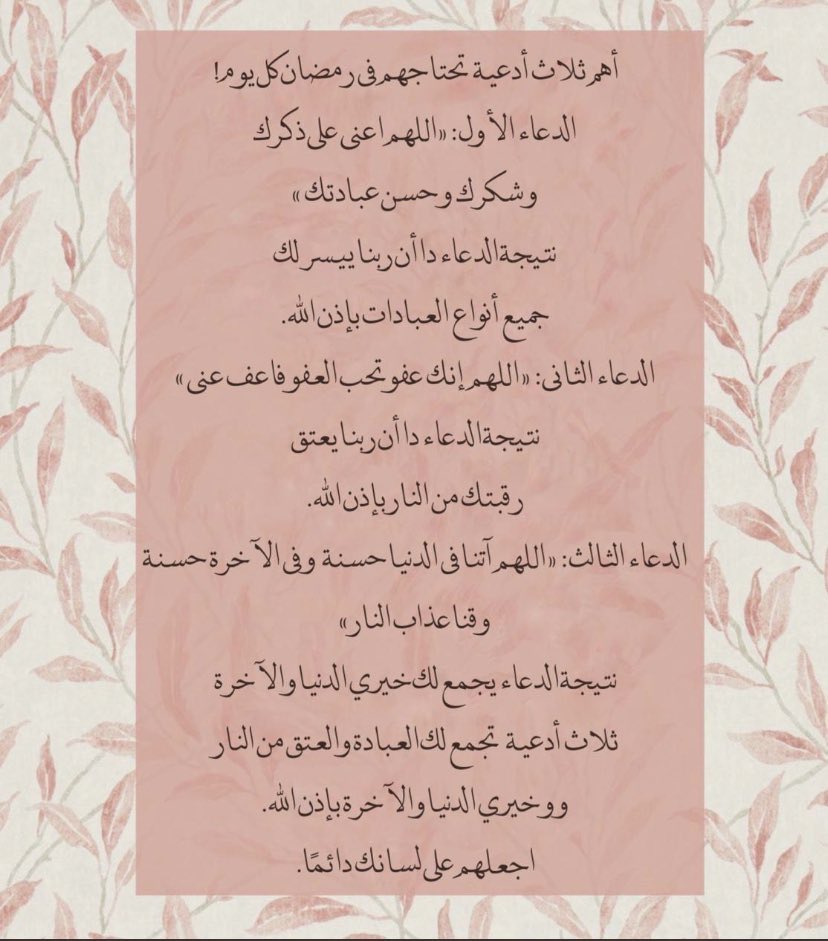 أهم ثلاث أدعية تحتاجهم فى رمضان كل يوم!
الدعاء الأول: «اللهم اعنى على ذكرك
وشكرك وحسن عبادتك»
نتيجة الدعاء دا أن ربنا ييسر لك
جميع أنواع العبادات بإذن الله.
الدعاء الثانى: «اللهم إنك عفو تحب العفو فاعف عنى»
نتيجة الدعاء دا أن ربنا يعتق
رقبتك من النار بإذن الله.
الدعاء الثالث: «اللهم آتنا فى الدنيا حسنة وفى الآخرة حسنة
وقنا عذاب النار»
نتيجة الدعاء يجمع لك خيري الدنيا والآخرة
ثلاث أدعية تجمع لك العبادة والعتق من النار
ووخيري الدنيا والآخرة بإذن الله.
اجعلهم على لسانك دائمًا.